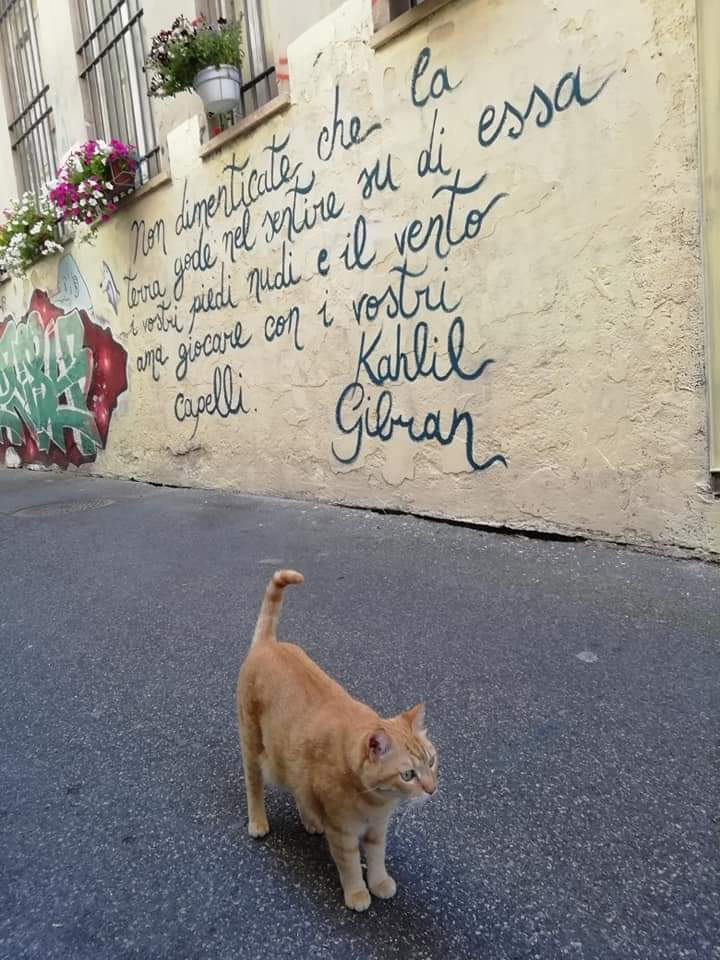 Non dimenticate, che la
terra gode nel sentire su di essa
i vostri piedi nudi e il vento
ama giocare con i vostri
capelli.
Kahlil
Gibran